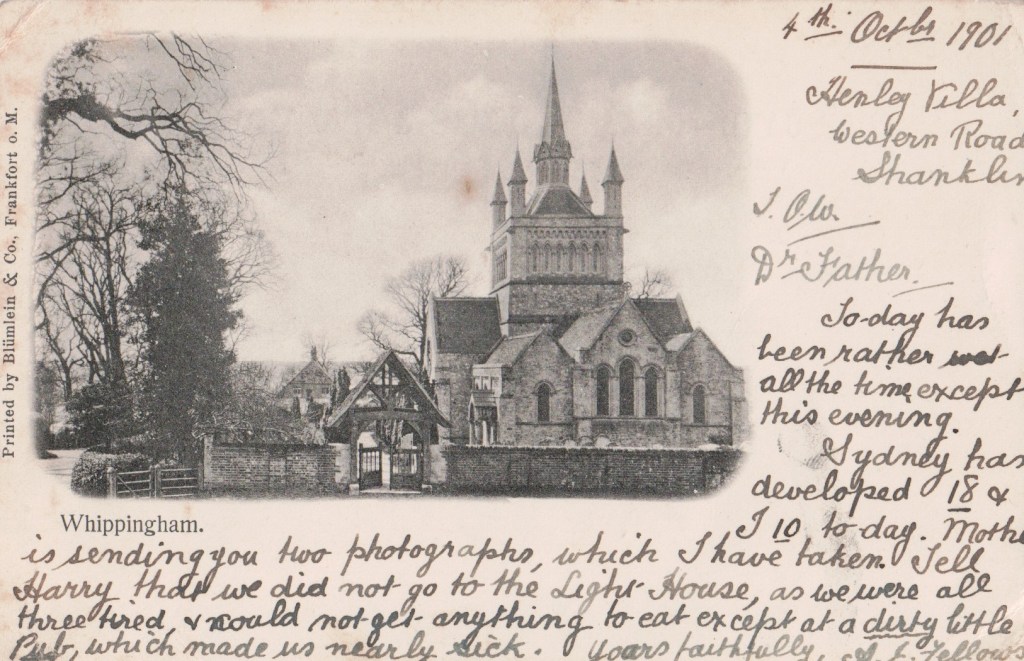 4th. Octbr 1901
Henley Villa,
Western Road
Shanklin
I.O.W.
Dr Father.
To-day has
been rather wet
all the time, except
this evening.
Sydney has
developed 18 &
I 10 to-day. Mothe
is sending you two photographs, which I have taken. Tell
Harry that we did not go to the Light-House, as we were all
three tired, & could not get anything to eat except at a dirty little
Pub, which made us nearly sick. Yours faithfully,
Whippingham.
Printed by Blümlein & Co., Frankfort o. M.